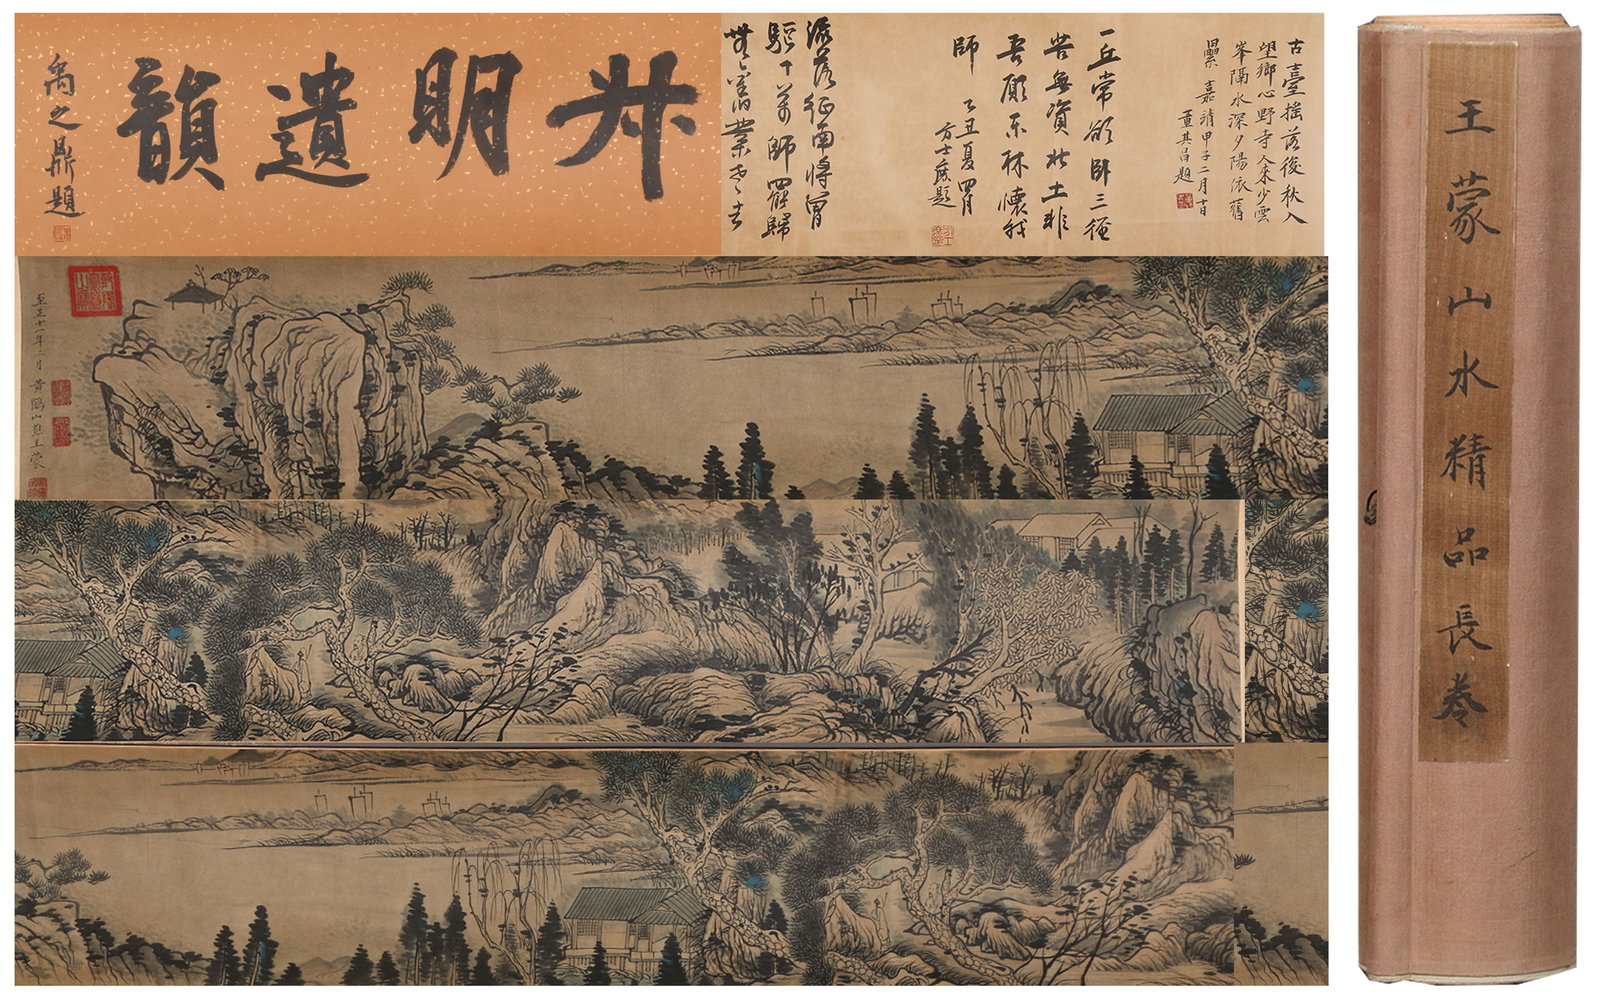 叔明遺韻
禹之鼎題
古臺搖落後秋入
望鄉心野寺人來少雲
峯隔水深夕陽依舊
壘 嘉靖甲子二月十日
董其昌題
一丘常欲卧三徑
苦無資北土非
吾願東林懷我
師
乙丑夏四月
方士庶題
流落征南將曾
驅十萬師罷歸
無舊業老去
至正十一年二月黄鶴山樵王蒙
王蒙山水精品長卷